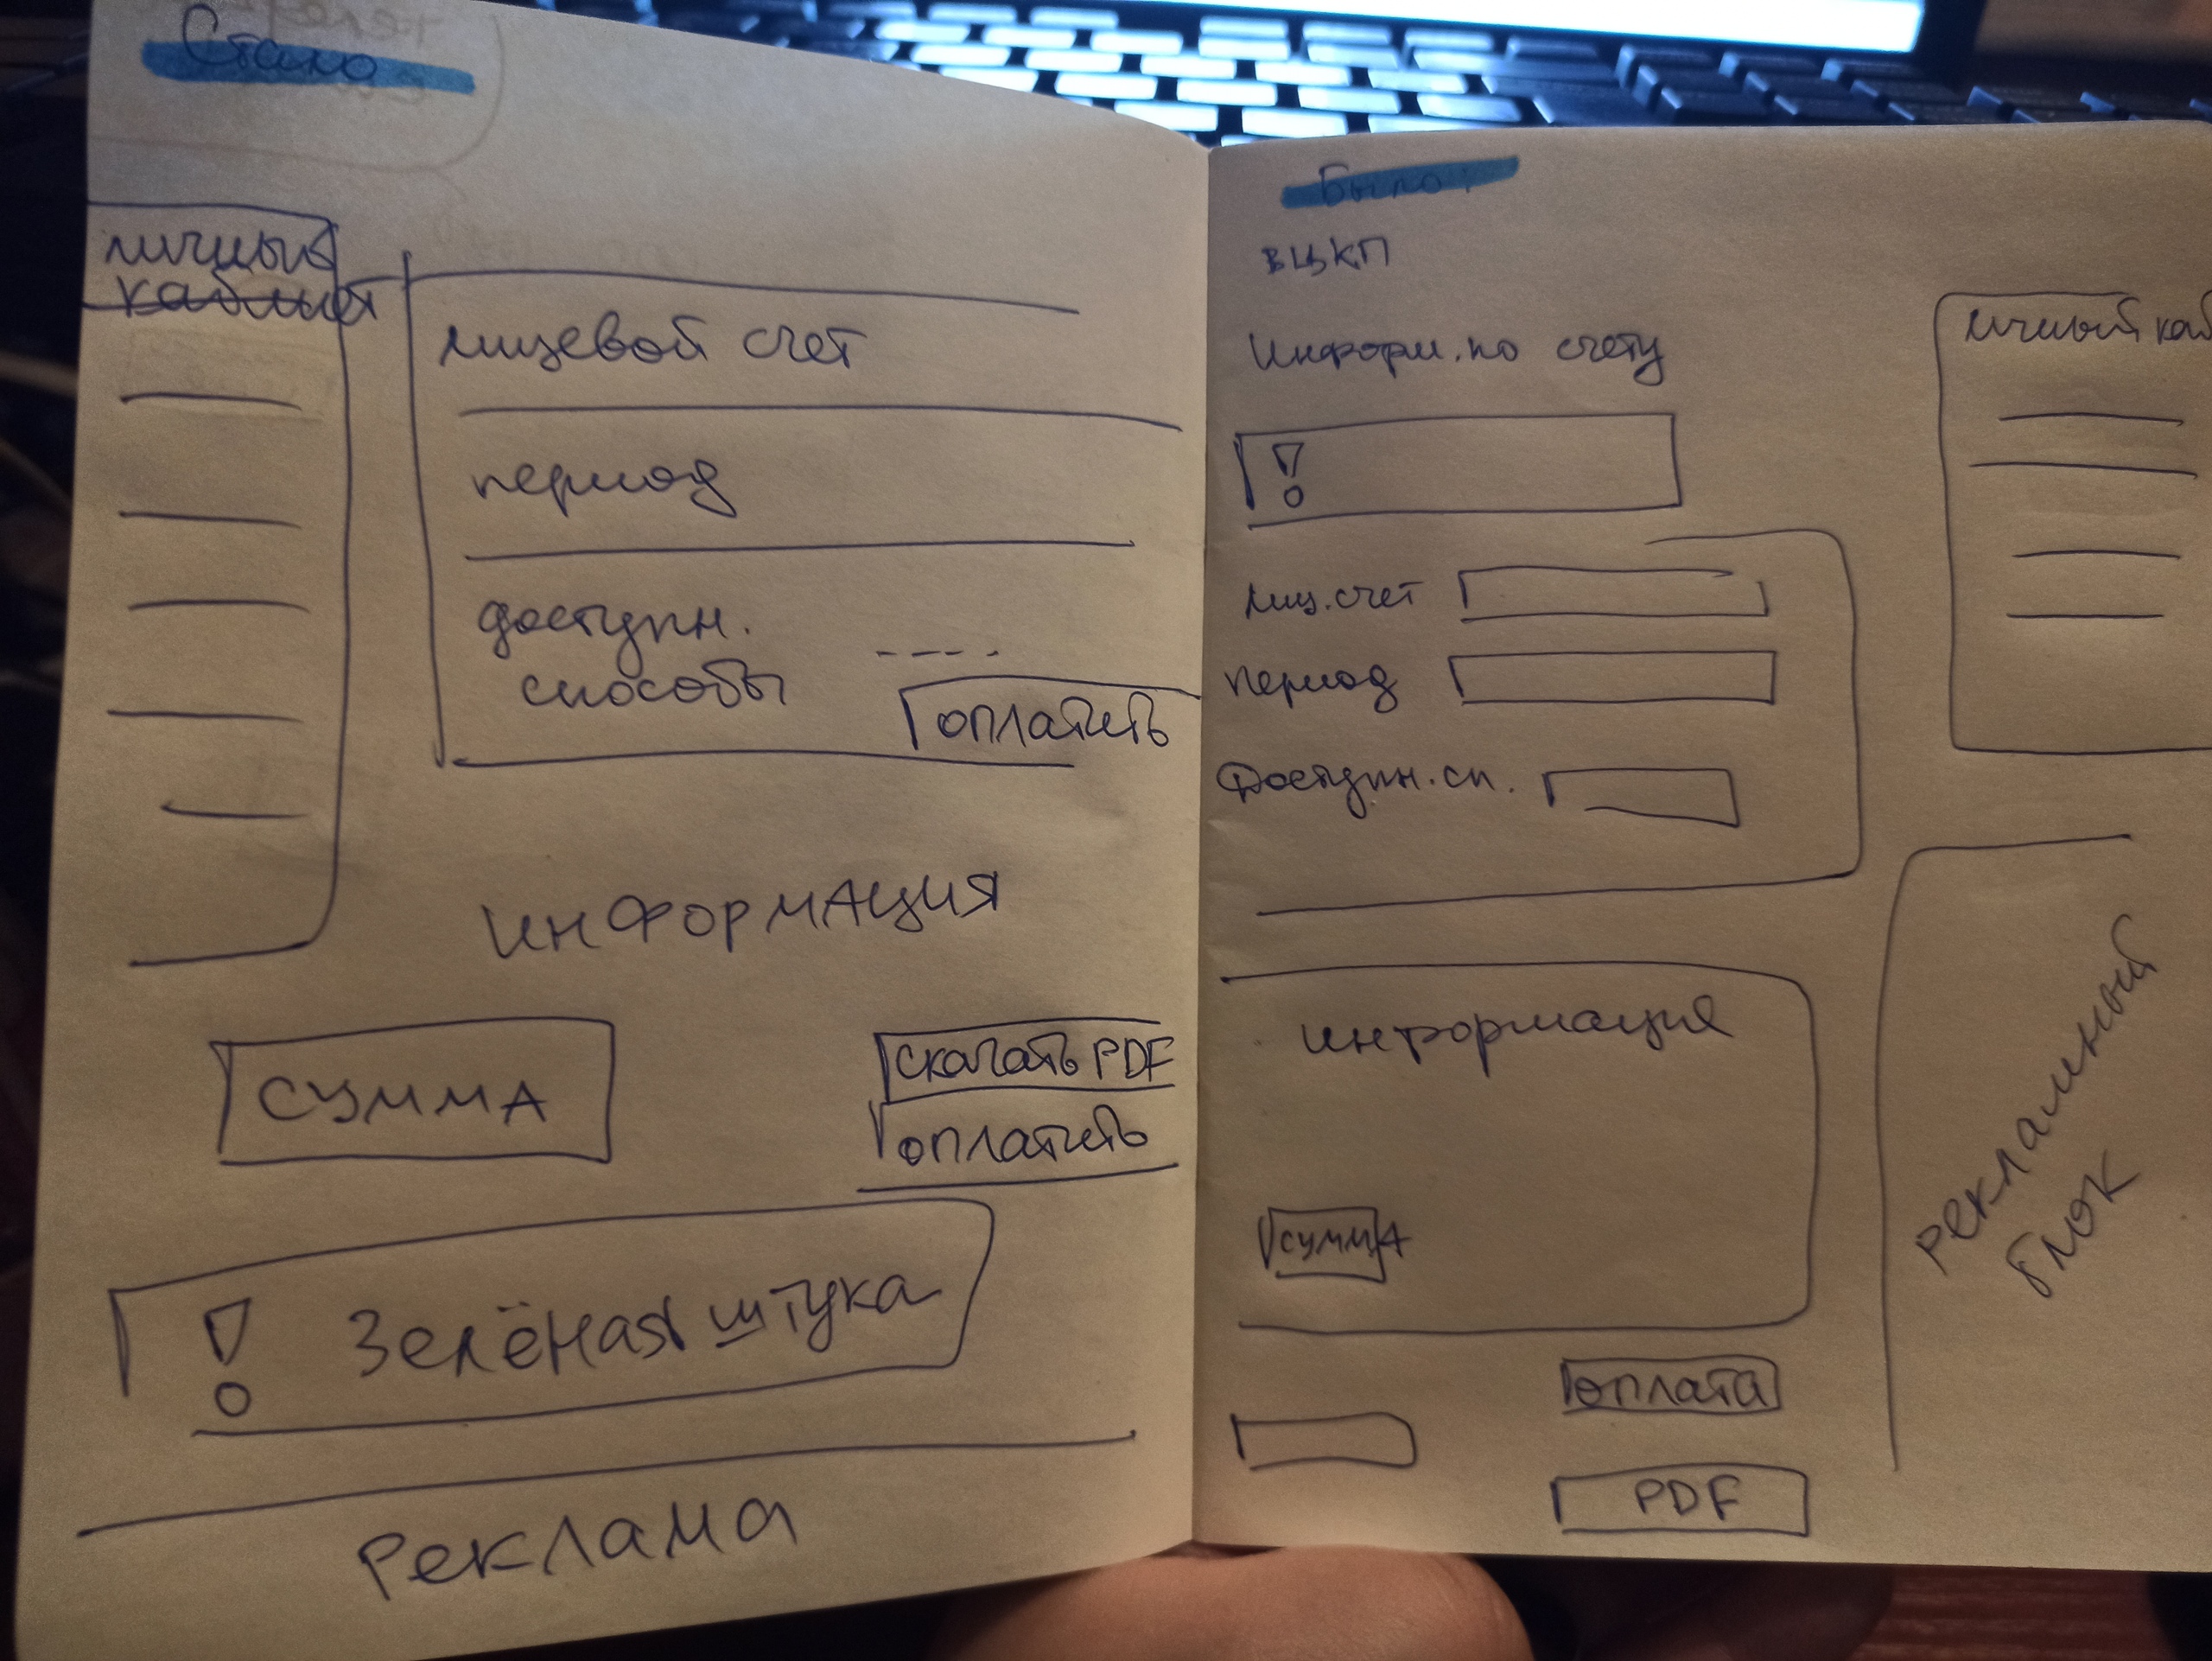 Стало
личный
кабинет
лицевой счет
период
доступн.
способы
оплатить
ИНФОРМАЦИЯ
СУММА
скачать PDF
оплатить
! Зелёная штука
Реклама
Было:
ВЦКП
Информ. по счету
!
лиц. счет
период
Доступн. сп.
информация
СУММА
оплата
PDF
личный каб
рекламный
блок